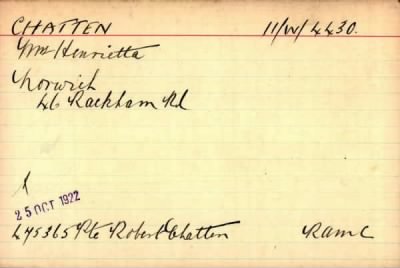 CHATTEN 11/W/4430.
Mrs Henrietta
Norwich
46 Rackham Rd
25 OCT 1922
475365 Pte Robert Chatten RAMC